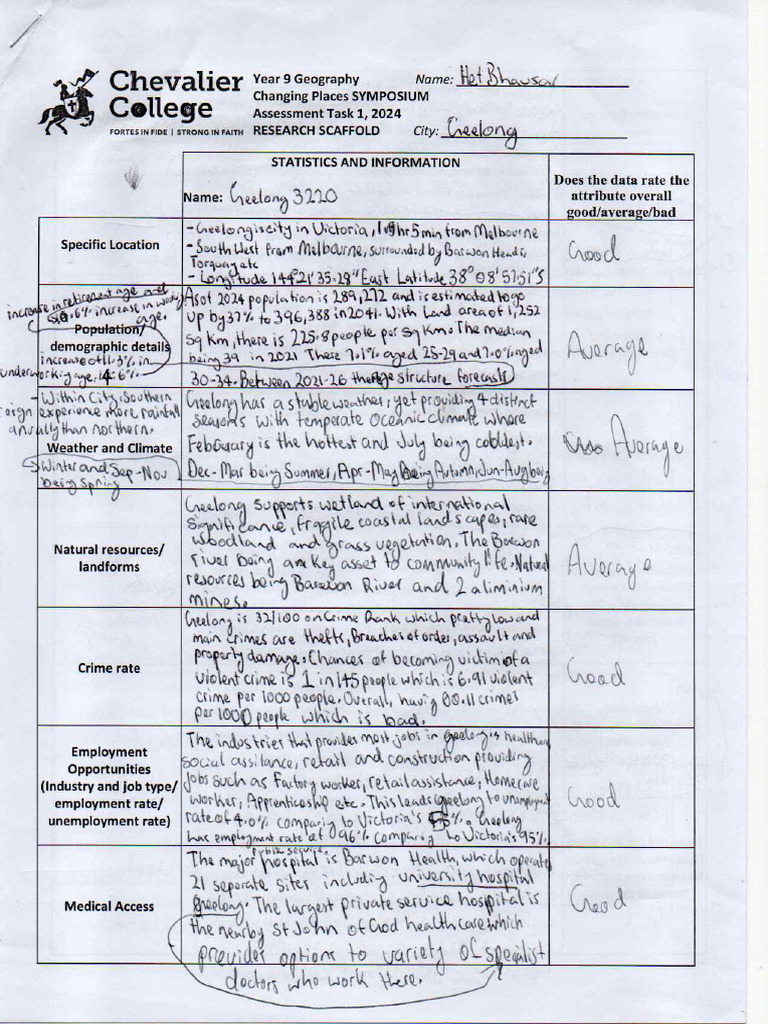 Chevalier
College
FORTES IN FIDE | STRONG IN FAITH
Year 9 Geography
Changing Places SYMPOSIUM
Assessment Task 1, 2024
RESEARCH SCAFFOLD
Name: Het Bhavsar
City: Geelong
STATISTICS AND INFORMATION
Name: Geelong 3220
Does the data rate the
attribute overall
good/average/bad
Specific Location
- Geelong is city in Victoria, 1hr 5min from Melbourne
- South West from Melbourne, surrounded by Barwon Heads
Torquay etc
- Longitude 144°21'35.28" East Latitude 38° 08' 51.51"S
Good
increase in retirement age and
6% increase in working
age.
Population/
demographic details
increase of 11.3% in
under working age, 14.6%.
As of 2024 population is 289,272 and is estimated to go
up by 37% to 396,388 in 2041. With Land area of 1,252
sq km, there is 225.8 people per sq km. The median
being 39 in 2021 There 7.1% aged 25-29 and 7.0% aged
30-34. Between 2021-26 the age structure forecasts
Average
- Within City, Southern
region experience more rainfall
annually than northern.
Weather and Climate
Winter and Sep-Nov
being spring
Geelong has a stable weather, yet providing 4 distinct
seasons with temperate Oceanic climate where
February is the hottest and July being coldest.
Dec-Mar being Summer, Apr-May Being Autumn, Jun-Aug being
Average
Natural resources/
landforms
Geelong supports wetland of international
significance, fragile coastal landscapes, rare
woodland and grass vegetation. The Barwon
river being an key asset to community life. Natural
resources being Barwon River and 2 aliminium
mines.
Average
Crime rate
Geelong is 32/100 on Crime Rank which pretty low and
main crimes are thefts, Breaches of order, assault and
property damage. Chances of becoming victim of a
violent crime is 1 in 145 people which is 6.91 violent
crime per 1000 people. Overall, having 80.11 crimes
per 1000 people which is bad.
Good
Employment
Opportunities
(Industry and job type/
employment rate/
unemployment rate)
The industries that provides most jobs in geelong is healthcare
social assistance, retail and construction providing
jobs such as Factory worker, retail assistance, Homecare
worker, Apprenticeship etc. This leads geelong to unemployment
rate of 4.0% comparing to Victoria's 5%. Geelong
has employment rate of 96% comparing to Victoria's 95%.
Good
Medical Access
public service
The major hospital is Barwon Health, which operate
21 seperate sites including university hospital
geelong. The largest private service hospital is
the nearby St John of God health care which
provides options to variety of specialist
doctors who work there.
Good